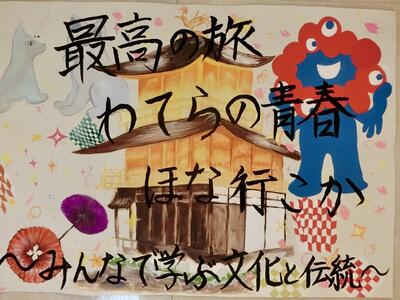 最高の旅
わてらの青春
ほな行こか
～みんなで学ぶ文化と伝統～